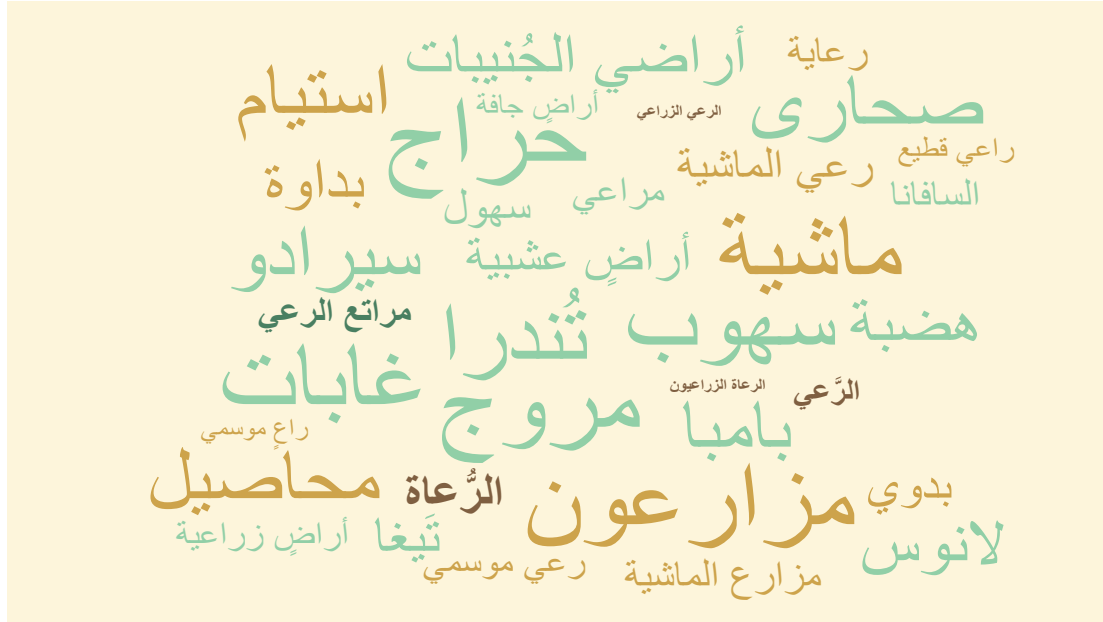 أراضي الجُنيبات
رعاية
استيام
صحارى
أراضٍ جافة
الرعي الزراعي
حراج
راعي قطيع
رعي الماشية
بداوة
مراعي
السافانا
سهول
ماشية
أراضٍ عشبية
سيرادو
مراتع الرعي
تُندرا
سهوب
هضبة
غابات
الرعاة الزراعيون
الرَّعي
مروج
بامبا
راعٍ موسمي
محاصيل
الرُّعاة
مزارعون
بدوي
أراضٍ زراعية
تَيغا
لانوس
رعي موسمي
مزارع الماشية